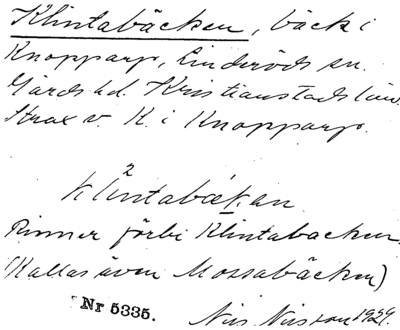 Klintabäcken, bäck i
Knopparp, Linderöds sn.
Gärds hd. Kristianstads län.
Strax v. K. i Knopparp.
klintabækan
Rinner förbi Klintabacken.
(Kallas även Mossabäcken)
Nr 5335.
Nils Nilsson 1929.